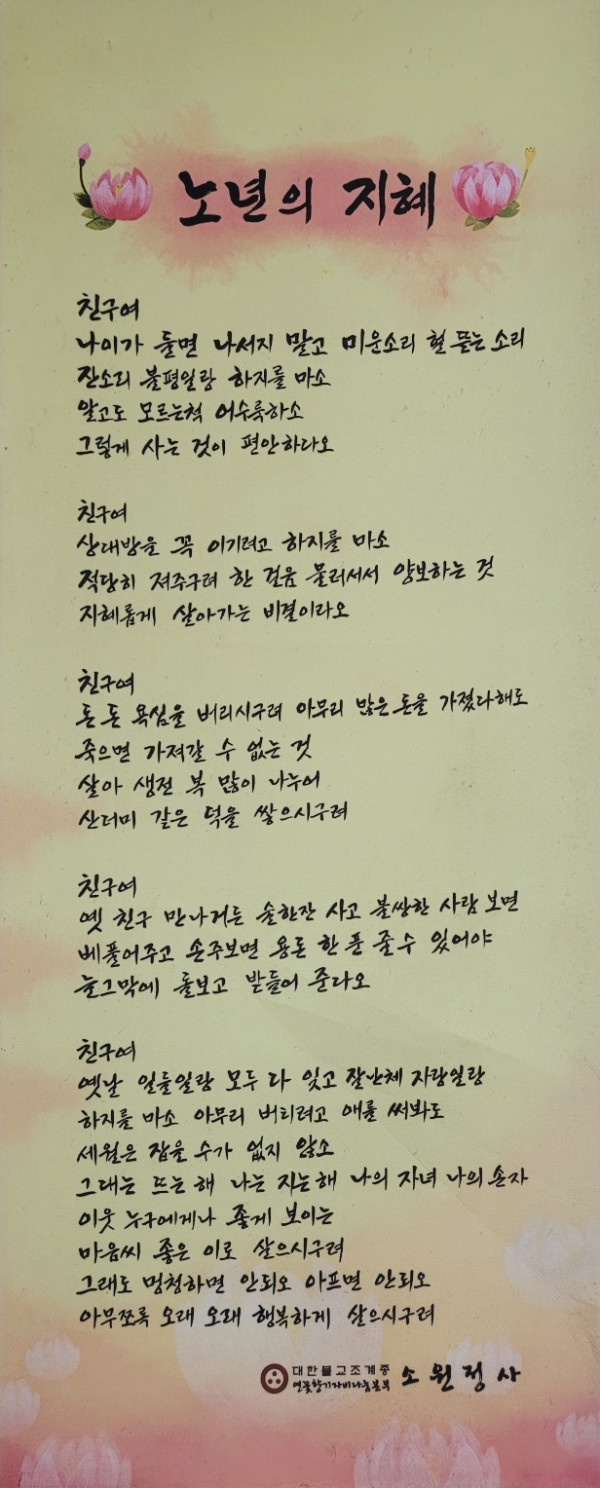 노년의 지혜
친구여
나이가 들면 나서지 말고 미운소리 헐뜯는 소리
잔소리 불평일랑 하지를 마소
알고도 모르는척 어수룩하소
그렇게 사는 것이 편안하다오
친구여
상대방을 꼭 이기려고 하지를 마소
적당히 져주구려 한 걸음 물러서서 양보하는 것
지혜롭게 살아가는 비결이라오
친구여
돈 돈 욕심을 버리시구려 아무리 많은 돈을 가졌다해도
죽으면 가져갈 수 없는 것
살아 생전 복 많이 나누어
산더미 같은 덕을 쌓으시구려
친구여
옛 친구 만나거든 술한잔 사고 불쌍한 사람 보면
베풀어주고 손주보면 용돈 한 푼 줄 수 있어야
늘그막에 돌보고 받들어 준다오
친구여
옛날 일들일랑 모두 다 잊고 잘난체 자랑일랑
하지를 마소 아무리 버티려고 애를 써봐도
세월은 잡을 수가 없지 않소
그대는 뜨는 해 나는 지는 해 나의 자녀 나의 손자
이웃 누구에게나 좋게 보이는
마음씨 좋은 이로 살으시구려
그래도 멍청하면 안되오 아프면 안되오
아무쪼록 오래 오래 행복하게 살으시구려
대한불교조계종
연꽃향기자비나눔본부 소원정사